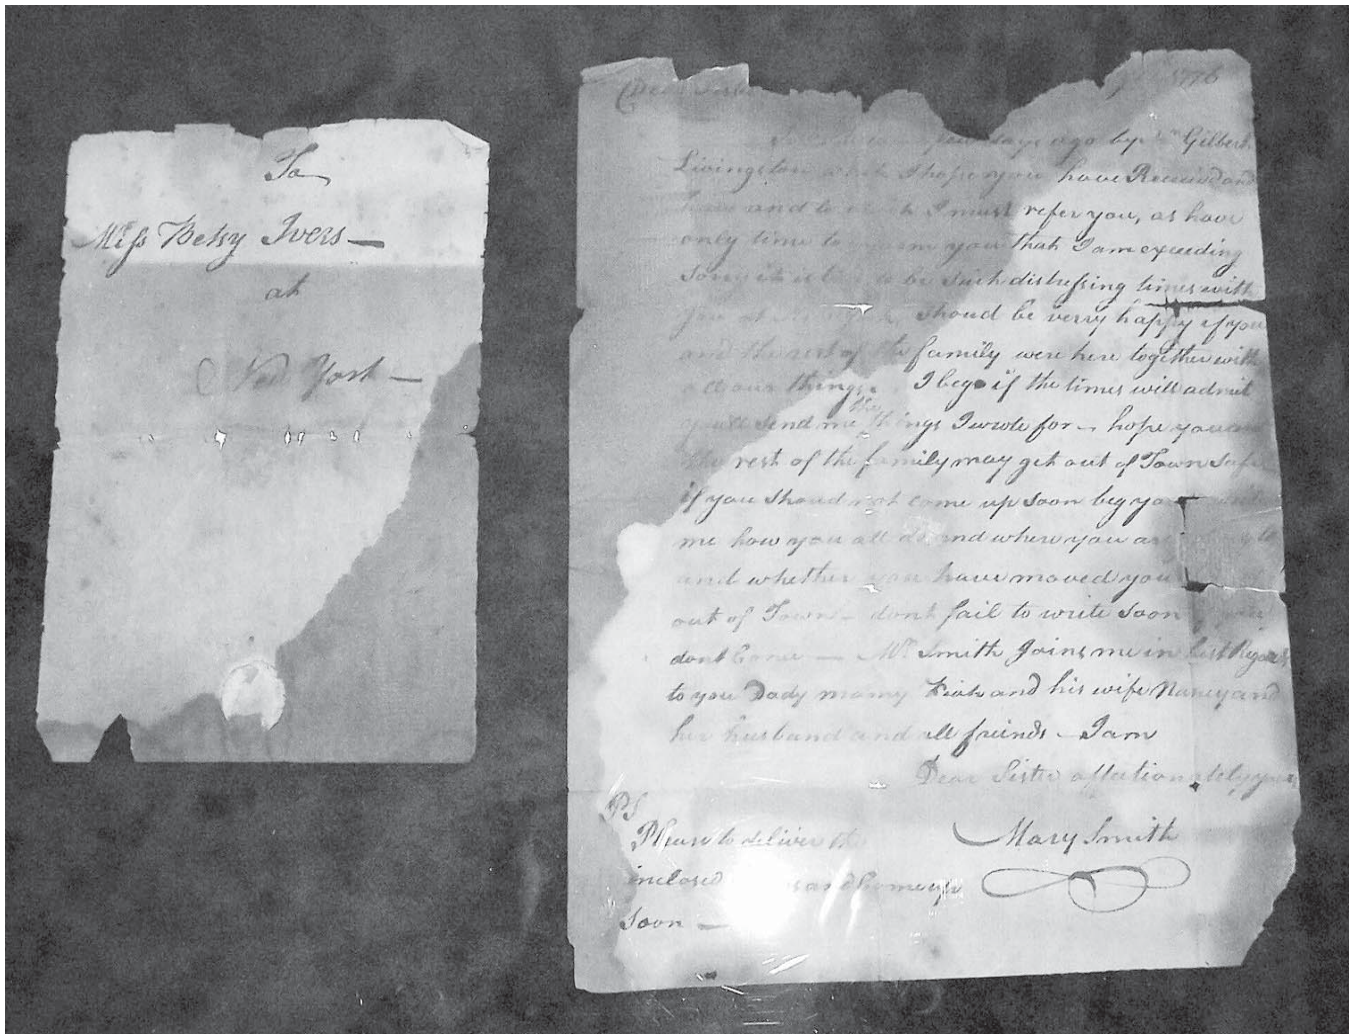 To
Miss Betsy Ivers —
at
New York —
Dear Sister
1776
few days ago by Mr Gilbert
Livingston which I hope you have Received and
and to which I must refer you, as have
only time to inform you that I am exceeding
Sorry it is to be Such distressing times with
you at New York, Shoud be verry happy if you
and the rest of the family were here together with
all our things. I beg if the times will admit
you'll Send me the things I wrote for — hope you and
the rest of the family may get out of Town Safe
if you Shoud not come up Soon beg you
me how you all do and where you are
and whether you have moved you
out of Town — dont fail to write Soon
dont Come — Mr. Smith Joins me in best Regards
to you Dady mamy and his wife Nancy and
her husband and all friends — I am
Dear Sister affectionately yours
PS
Please to deliver the
inclosed and Come up
Soon —
Mary Smith